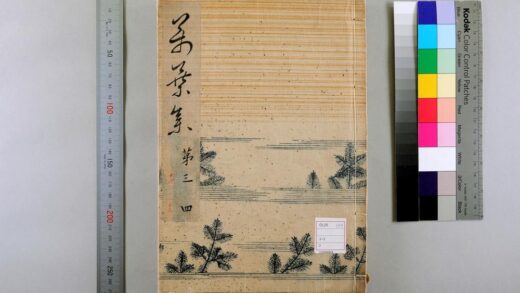 萬葉集 第三四
50
100
150
200
250
Kodak
Color Control Patches
Blue
Cyan
Green
Yellow
Red
Magenta
White
3/Color
Black